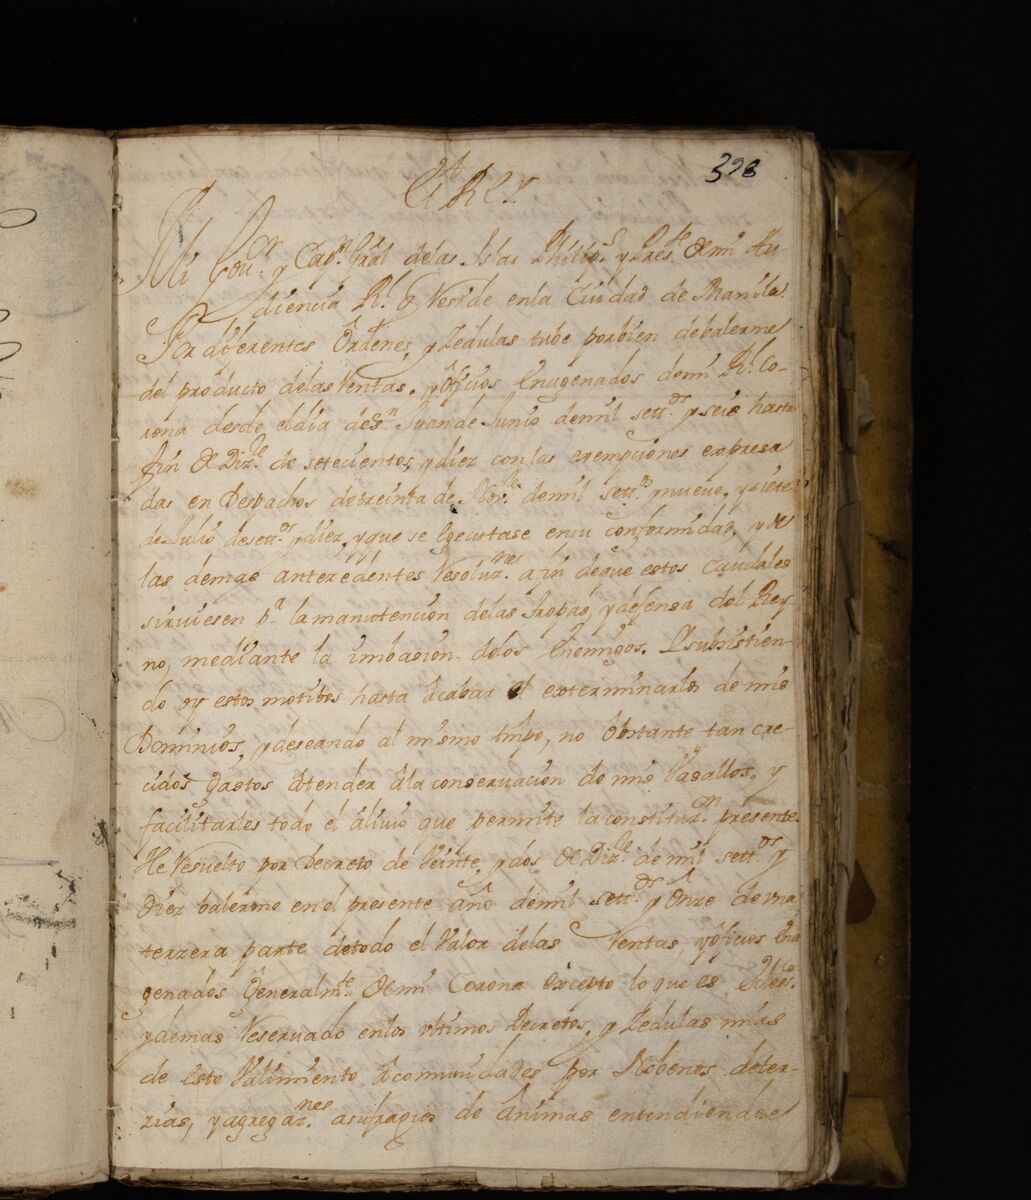 328
El Rey
Mi Gouor. y Capn. Gràl delas Islas Philips. y Preste. de mi Au-
diencia Rl. q Reside enla Ciudad de Manila.
Por diferentes Ordenes, y Zedulas tube porbien debalerme
del producto delas Rentas, y Oficios Enagenados demi Rl. Co-
rona desde eldia de Sn. Juan de Junio demil settos. y seis hasta
fin de Dizre. de setecientos, y diez con las exempciones expresa
das en Despachos detreinta de Novre. demil settos. y nueve, y siete
de Julio desettos. y diez, y que se egecutase ensu conformidad, y de
las demas antezedentes Resoluznes. a fin deque estos Caudales
siruiesen pa. la manutenciòn delas tropas, y defensa del Rey
no, mediante la imbasion delos Enemigos. Y subsistien-
do oy estos motibos hasta acabar el exterminarlos de mis
Dominios, y deseando al mismo tmpo, no obstante tan cre-
cidos gastos atender àla conservaciòn de mis Vasallos, y
facilitarles todo el aliuio que permite la constituzon. presente.
He Resuelto por Decreto de Veinte, y dos de Dizre. de mil settos. y
Diez balerme en el presente año demil settos. y Onze de vna
terzera parte detodo el Valor delas Rentas, y Oficios Ena
genados Generalmte. de mi Corona excepto lo que es
y demas Reseruado enlos vltimos Decretos, y Zedulas mias
de este Valimiento à comunidades por Nobenos de ter-
zias, y agregaznes. a sufragios de Animas entendiendose